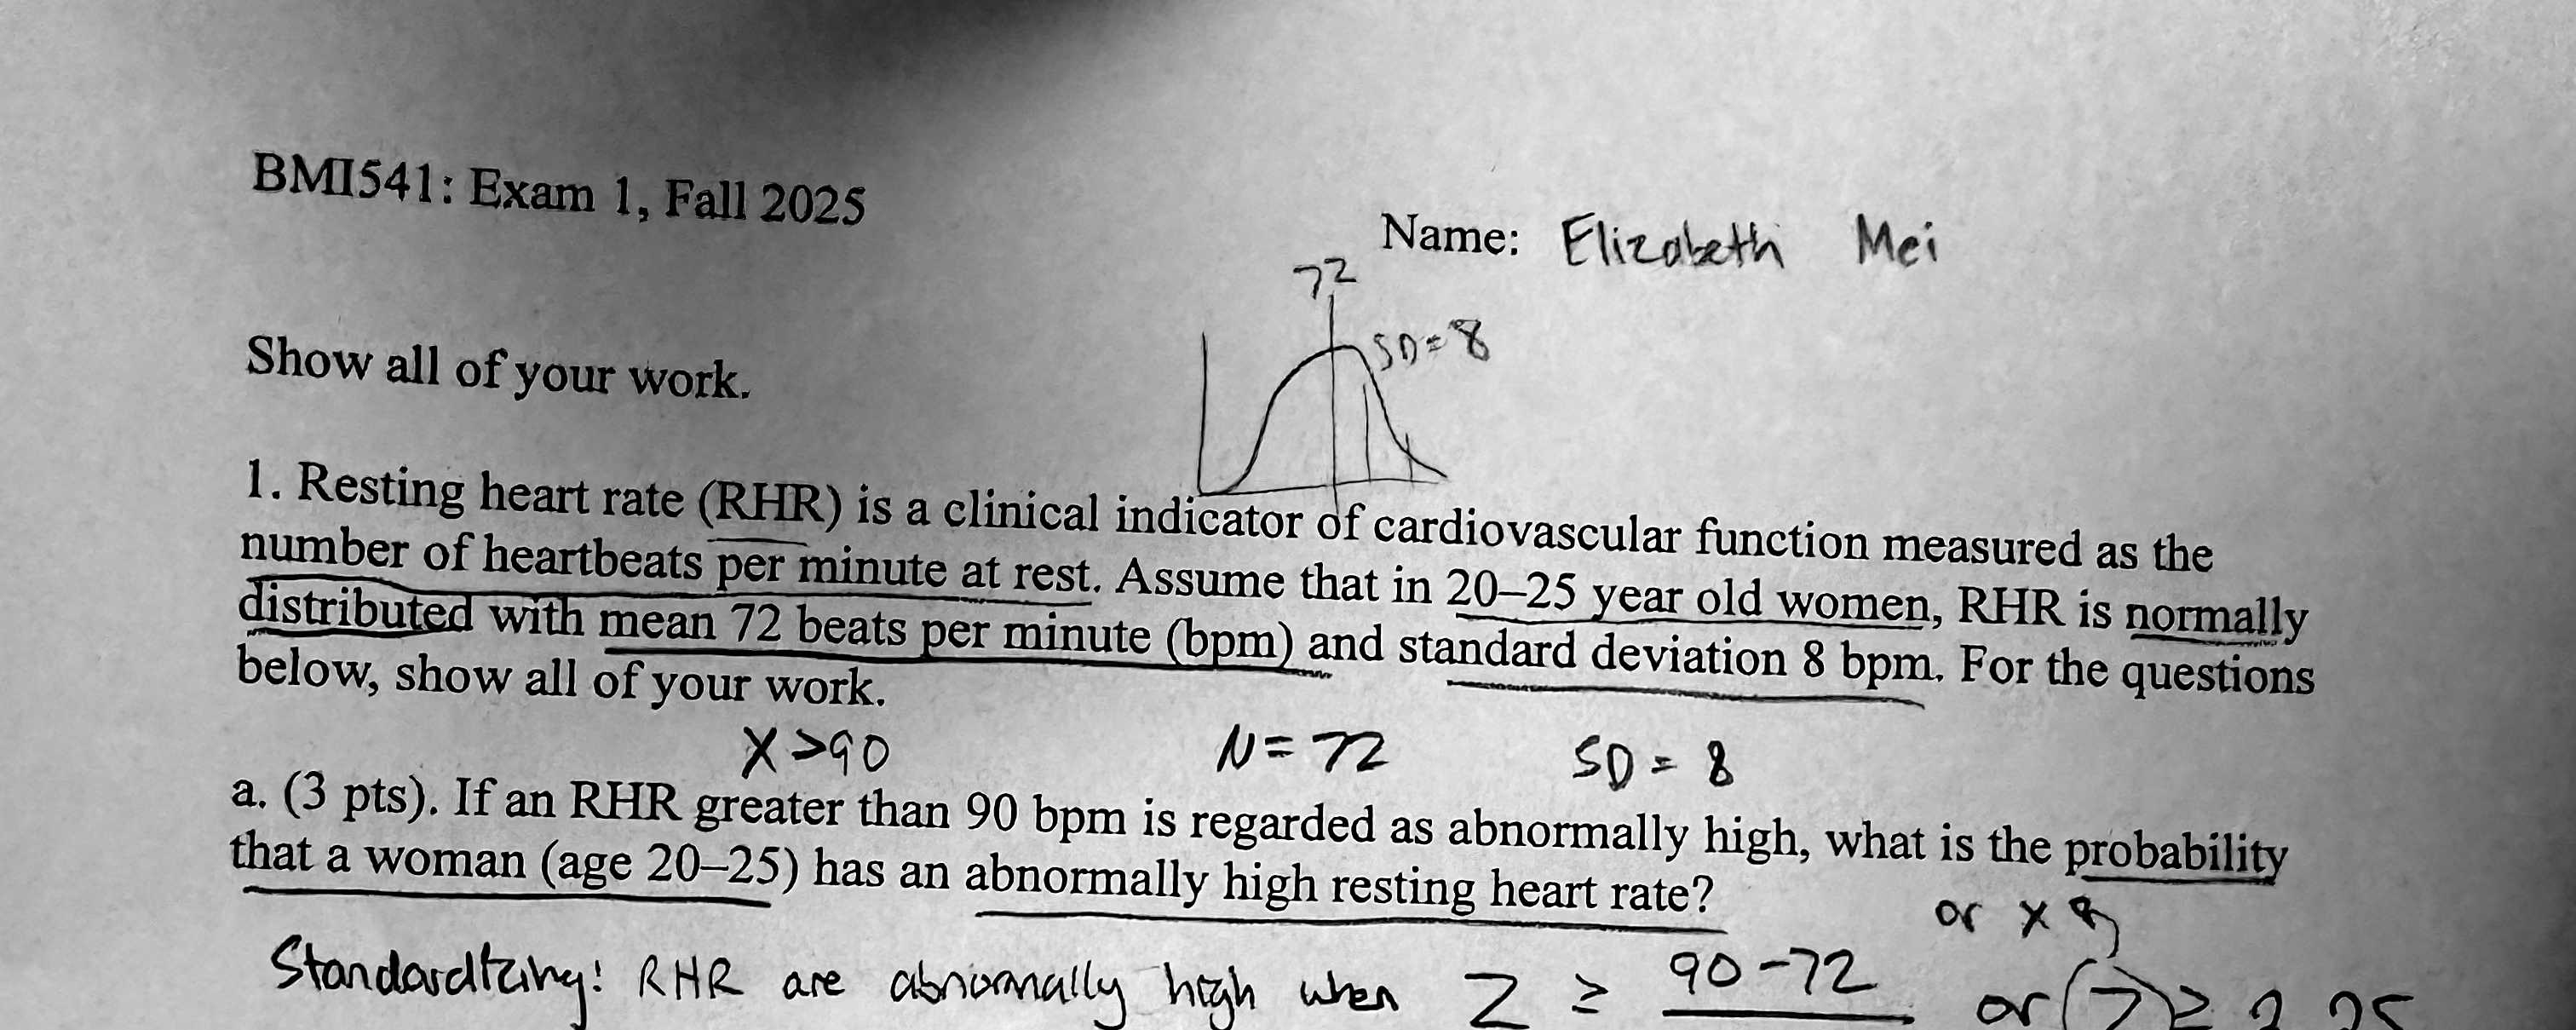 BMI541: Exam 1, Fall 2025
Name: Elizabeth Mei
72
SD = 8
Show all of your work.
1. Resting heart rate (RHR) is a clinical indicator of cardiovascular function measured as the
number of heartbeats per minute at rest. Assume that in 20–25 year old women, RHR is normally
distributed with mean 72 beats per minute (bpm) and standard deviation 8 bpm. For the questions
below, show all of your work.
X >90 N = 72 SD = 8
a. (3 pts). If an RHR greater than 90 bpm is regarded as abnormally high, what is the probability
that a woman (age 20–25) has an abnormally high resting heart rate?
or x
Standardizing: RHR are abnormally high when Z ≥ 90-72 or Z ≥ 2.25